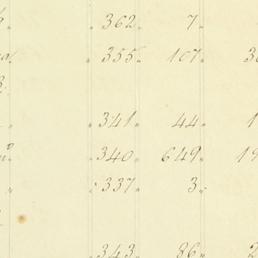 362. 7.
355. 107.
341. 44. 1
340. 649. 19
337. 3.
343. 86. 2